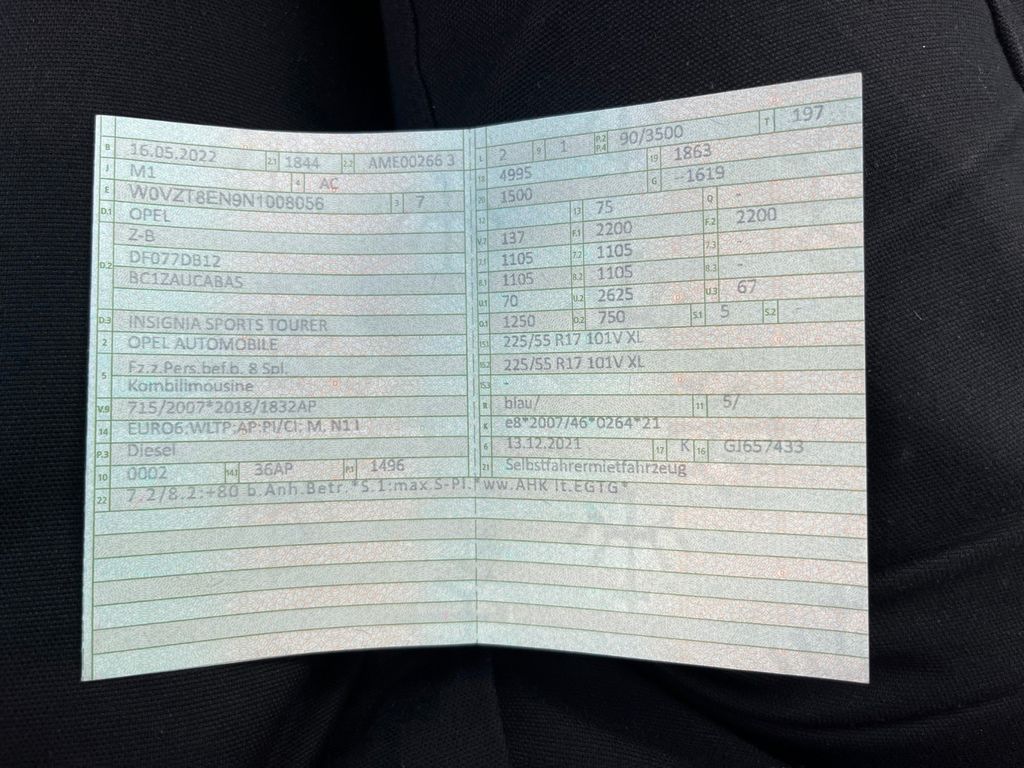 B 16.05.2022 2.1 1844 2.2 AME00266 3
J M1 4 AC
E W0VZT8EN9N1008056 3 7
D.1 OPEL
D.2 Z-B
DF077DB12
BC1ZAUCABAS
D.3 INSIGNIA SPORTS TOURER
2 OPEL AUTOMOBILE
5 Fz.z.Pers.bef.b. 8 Spl.
Kombilimousine
V.9 715/2007*2018/1832AP
14 EURO6;WLTP;AP;PI/CI; M, N1 I
P.3 Diesel
10 0002 14.1 36AP P.1 1496
22 7.2/8.2:+80 b.Anh.Betr.*S.1:max.5-Pl.*ww.AHK lt.EGTG*
L 2 9 1 P.2 P.4 90/3500 T 197
18 4995 19 1863
20 1500 G --1619
12 13 75 Q -
V.7 137 F.1 2200 F.2 2200
7.1 1105 7.2 1105 7.3 -
8.1 1105 8.2 1105 8.3 -
U.1 70 U.2 2625 U.3 67
O.1 1250 O.2 750 S.1 5 S.2
15.1 225/55 R17 101V XL
15.2 225/55 R17 101V XL
15.3 -
R blau/ 11 5/
K e8*2007/46*0264*21
6 13.12.2021 17 K 16 GJ657433
21 Selbstfahrermietfahrzeug